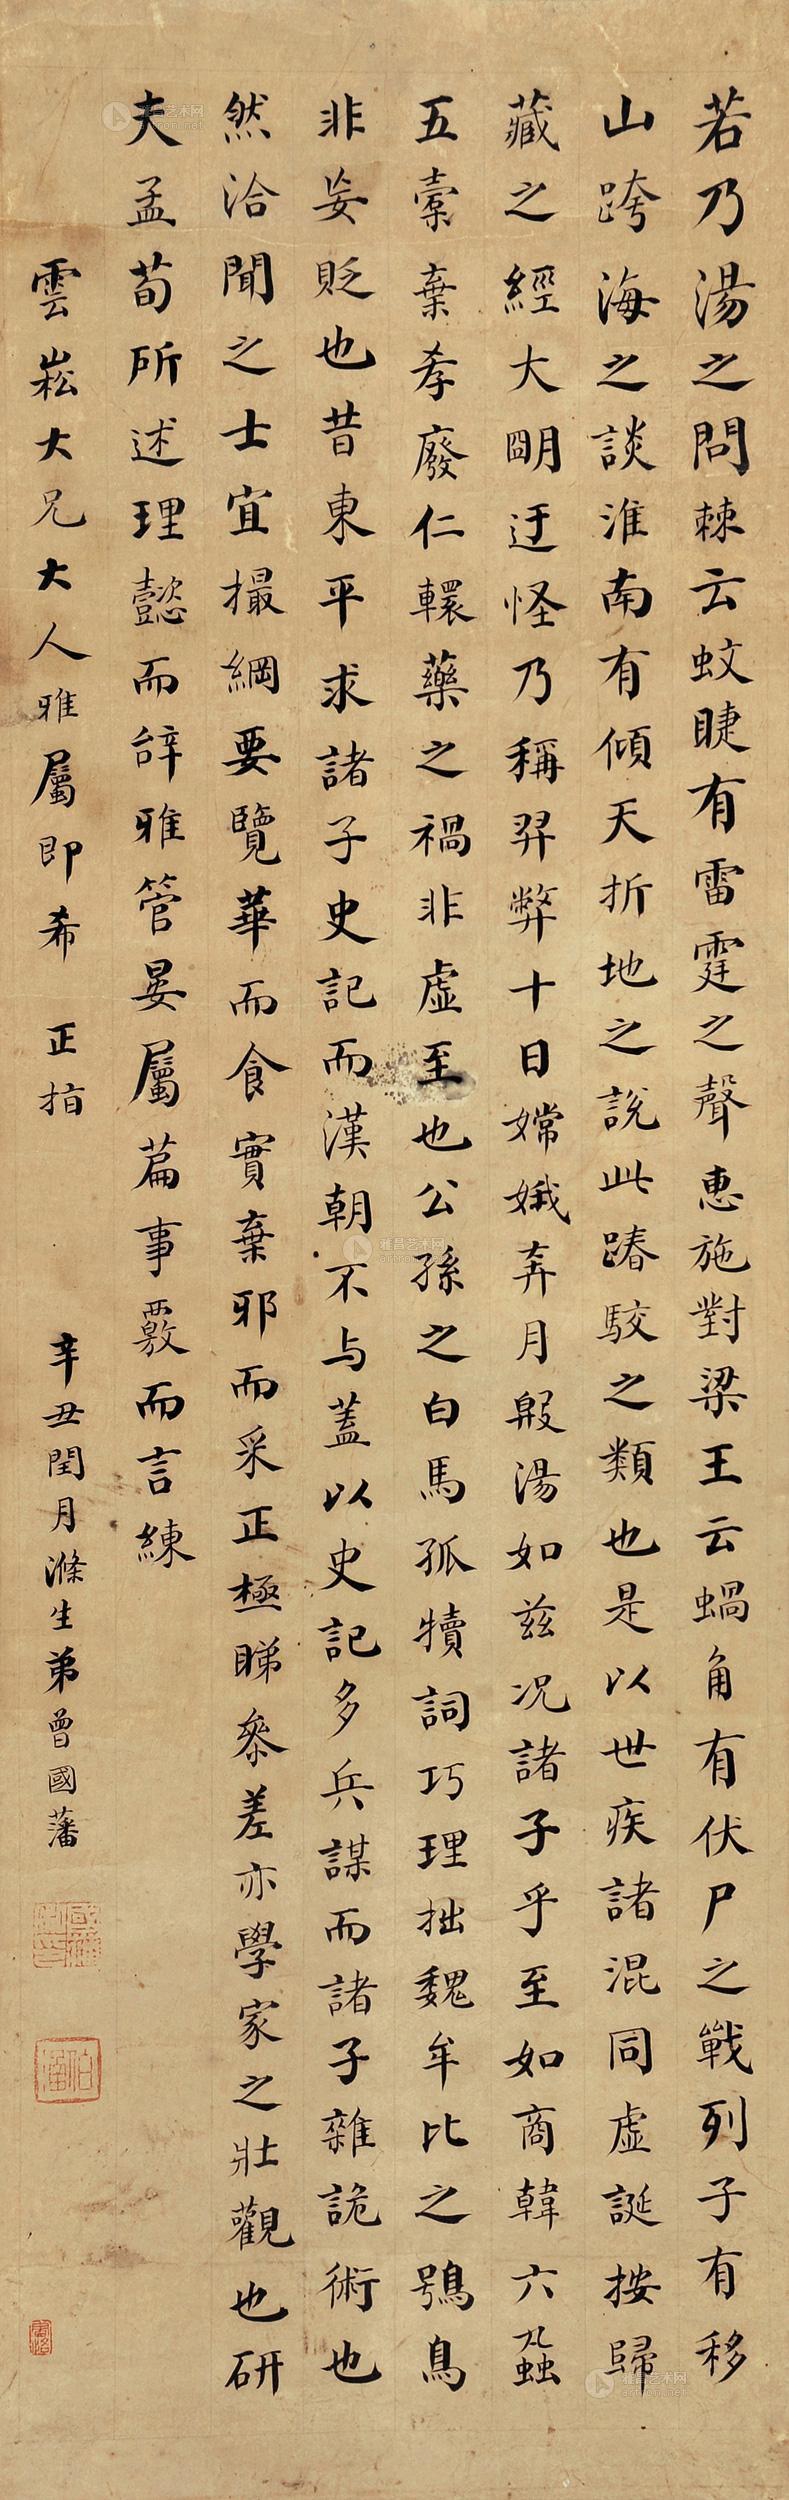 若乃湯之問棘云蚊睫有雷霆之聲惠施對梁王云蝸角有伏尸之戰列子有移
山跨海之談淮南有傾天折地之說此踳駮之類也是以世疾諸混同虛誕按歸
藏之經大明迂怪乃稱羿弊十日嫦娥奔月殷湯如茲况諸子乎至如商韓六蝨
五蠹棄孝廢仁轘藥之禍非虛至也公孫之白馬孤犢詞巧理拙魏牟比之鴞鳥
非妄貶也昔東平求諸子史記而漢朝不与蓋以史記多兵謀而諸子雜詭術也
然洽聞之士宜撮綱要覽華而食實棄邪而采正極睇參差亦學家之壯觀也研
夫孟荀所述理懿而辭雅管晏屬篇事覈而言練
雲崧大兄大人雅屬即希 正指
辛丑閏月滌生弟曾國藩
伯涵
雅昌艺术网
artron.net
雅昌艺术网
artron.net
雅昌艺术网
artron.net